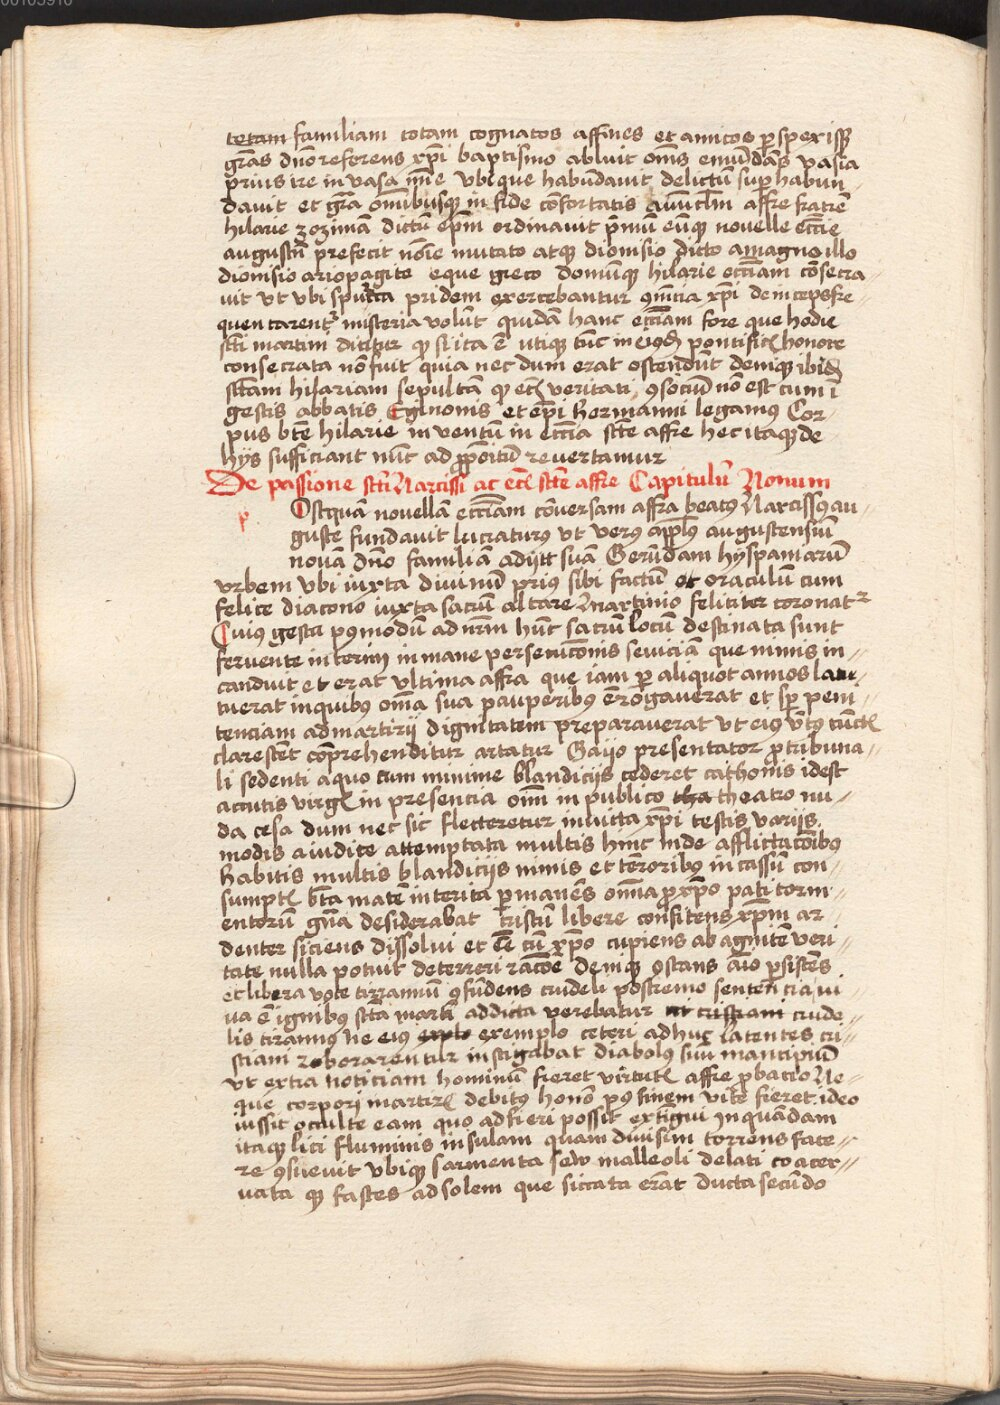 totam familiam totam cognatos affines et amicos p̲spexissꝫ
gr̄as dn̄o referens xp̄i baptismo abluit om̄s emūdās vasia
prius ire in vasa mīe Vbi que habūdauit delictū sup̲ habun
dauit et gr̄a omībusqꝫ in fide cōfortatis auūcl̄m affre fratrē
hilarie zozimā dictū ep̄m ordinauit pͥmū eūqꝫ nouelle ecc̄ie
augusteñ prefecit nōie mutato atqꝫ dionisio dicto a magno illo
dionisio ariopagite eque greco domūqꝫ hilarie ecc̄iam cōsecra
uit vt vbi spurca pridem exercebantur ꝯuīcia xp̄i deinceps fre
quentarentʳ misteria volūt quidā hanc ecc̄iam fore que hodie
sc̄ti martini dicitur qꝫ si ita ē utiqꝫ tūc in eiꝰdē pontificꝭ honore
consecrata nō fuit quia nec dum erat ostendūt deniqꝫ ibidē
sc̄tam hilariam sepultā qꝫ ecꝭ veritati ꝯsociū nō est cum ī
gestis abbatis Eginonis et ep̄i hermanni legamꝰ Cor
pus bt̄e hilarie inuentū in ecc̄ia sc̄te affre hec itaqꝫ de
hys sufficiant nūc ad pp̄oitū reuertamur
De passione sc̄ti Narcissi ac ecꝭ sc̄te affre Capitulū Nonum
p Ostquā nouellā ecc̄iam cōuersam affra beatꝰ Narcissꝰ au
guste fundauit lucraturꝰ vt verꝰ ap̄lꝰ augustensiū
nouā dn̄o familiā adijtt suā Gerūdam hyspaniarū
vrbem vbi iuxta diuinū prius sibi factū or oraculū cum
felice diacono iuxta sacrū altare Martirio feliciter coronatʳ
Cuiꝰ gesta pꝰmodū ad nr̄m hūc sacrū locū destinata sunt
feruente interim inmane persecucōnis seuiciā que nimis in
canduit et erat vltima affra que iam p̲ aliquot annos latu
tuerat in quibꝰ om̄ia sua pauperibꝰ ērogauerat et sp̲ peni
tenciam ad martirij dignitatem preparauerat vt eiꝰ v̄tꝰ cūctꝭ
clarescēt cōprehenditur artatur Gaijo presentator p̲ tribuna
li sedenti a quo cum minime blandicijs cederet cathonis idest
acutis virgꝭ in presencia om̄i in publico tha theatro nu
da cesa dum nec sic flecteretur inuicta xp̄i testis varijs
modis a iudice attemptata multis hinc inde afflictacōibꝰ
habitis multis blandicijs nimis et terroribꝰ in cassū con
sumptꝭ bt̄a matē interita p̲manēs om̄ia p̲ xp̄o pati torm
entorū gn̄a desiderabat cristū libere confitens xp̄m ar
denter siciens dissolui et ēē cū xp̄o cupiens ab agnitē veri
tate nulla potuit deterreri rācōe Deniqꝫ ꝯstans āīo p̲sistēs
et libera voce tirannū ꝯfūdens crudeli postremo sentencia ui
ua ē ignibꝰ sc̄ta martī addicta verebatur ut cristiani crude
lis tirannꝰ ne eiꝰ explo exemplo ceteri adhuc latentes cri
stiani roborarentur instigabat diabolꝰ suū mancipiū
vt extra noticiam hominū fieret virtutꝭ affre p̲bacio Ne
que corpori martirꝭ debitꝰ honō pꝰ finem vite fieret ideo
iussit occulte eam quo ad fieri possit extigui In quādam
itaqꝫ lici fluminis insulam quam diuisim torrens face
re ꝯsueuit vbiqꝫ sarmenta seu malleoli delati coacer
uata qꝫ fasces ad solem que siccata erāt ducta secūdo